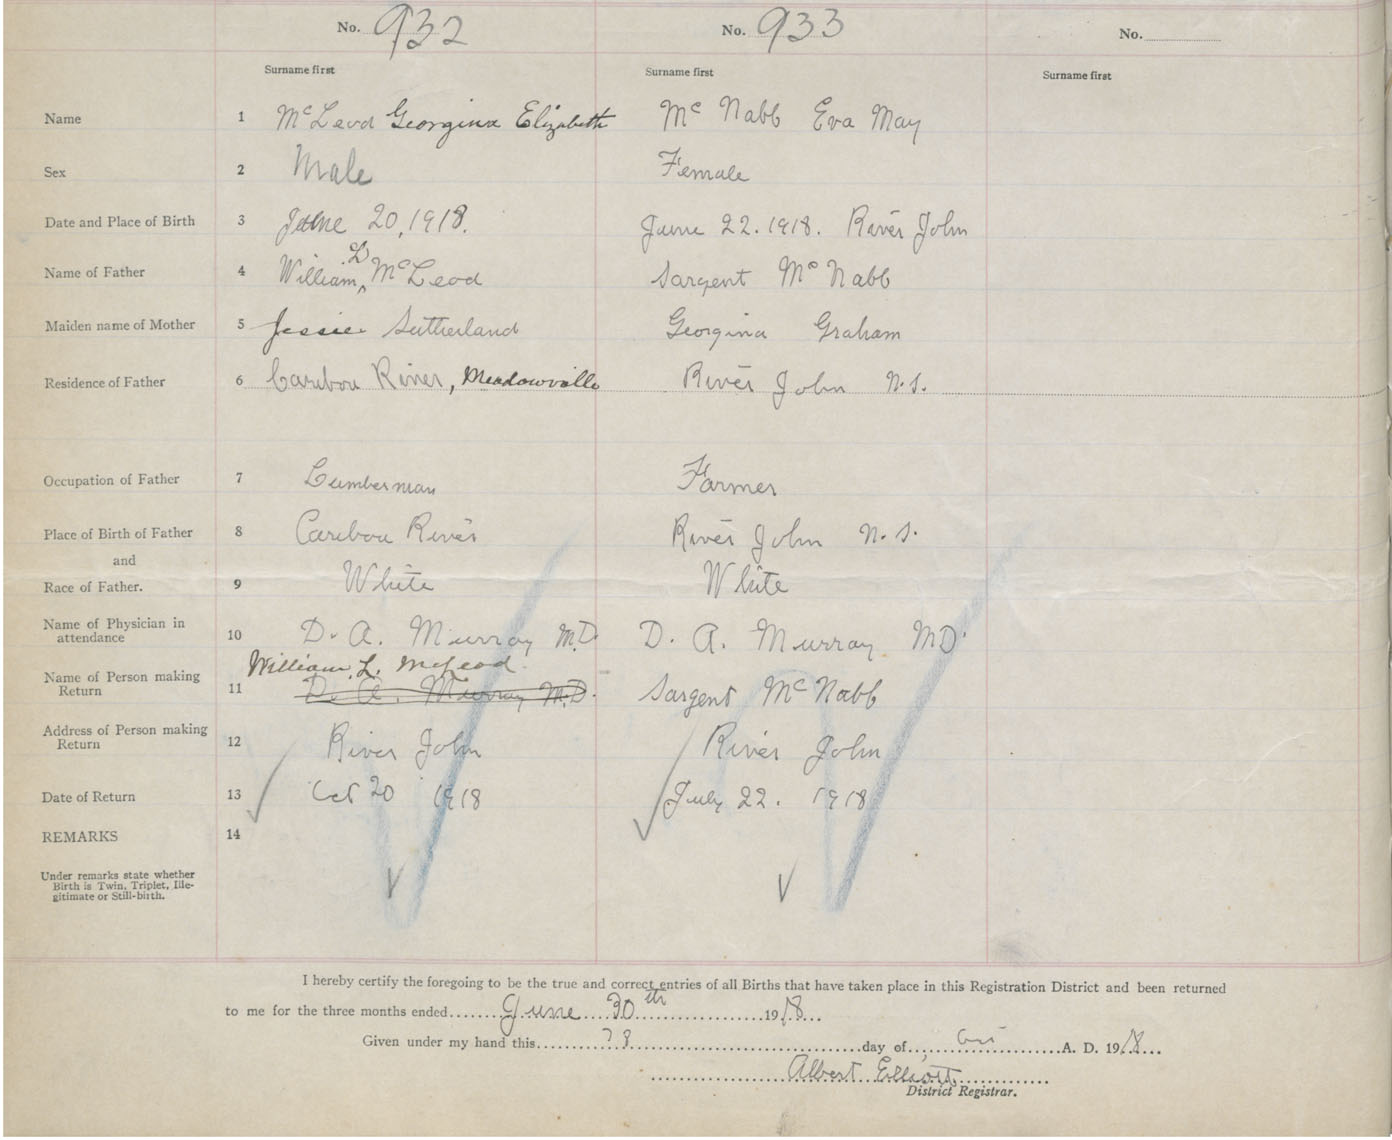 No. 932 No. 933 No.
Surname first Surname first Surname first
Name 1 McLeod Georgina Elizabeth Mc Nabb Eva May
Sex 2 Male Female
Date and Place of Birth 3 June 20, 1918. June 22. 1918. River John
Name of Father 4 William L McLeod Sargent Mc Nabb
Maiden name of Mother 5 Jessie Sutherland Georgina Graham
Residence of Father 6 Caribou River, Meadowville River John N.S.
Occupation of Father 7 Lumberman Farmer
Place of Birth of Father 8 Caribou River River John N.S.
and
Race of Father. 9 White White
Name of Physician in
attendance 10 D. A. Murray M.D. D. A. Murray MD.
William L. McLeod.
Name of Person making
Return 11 D. A. Murray M.D. Sargent McNabb
Address of Person making
Return 12 River John River John
Date of Return 13 Oct 20 1918 July 22. 1918
REMARKS 14
Under remarks state whether
Birth is Twin, Triplet, Ille-
gitimate or Still-birth.
I hereby certify the foregoing to be the true and correct entries of all Births that have taken place in this Registration District and been returned
to me for the three months ended June 30th 1918
Given under my hand this day of A. D. 1918
Albert Elliott
District Registrar.